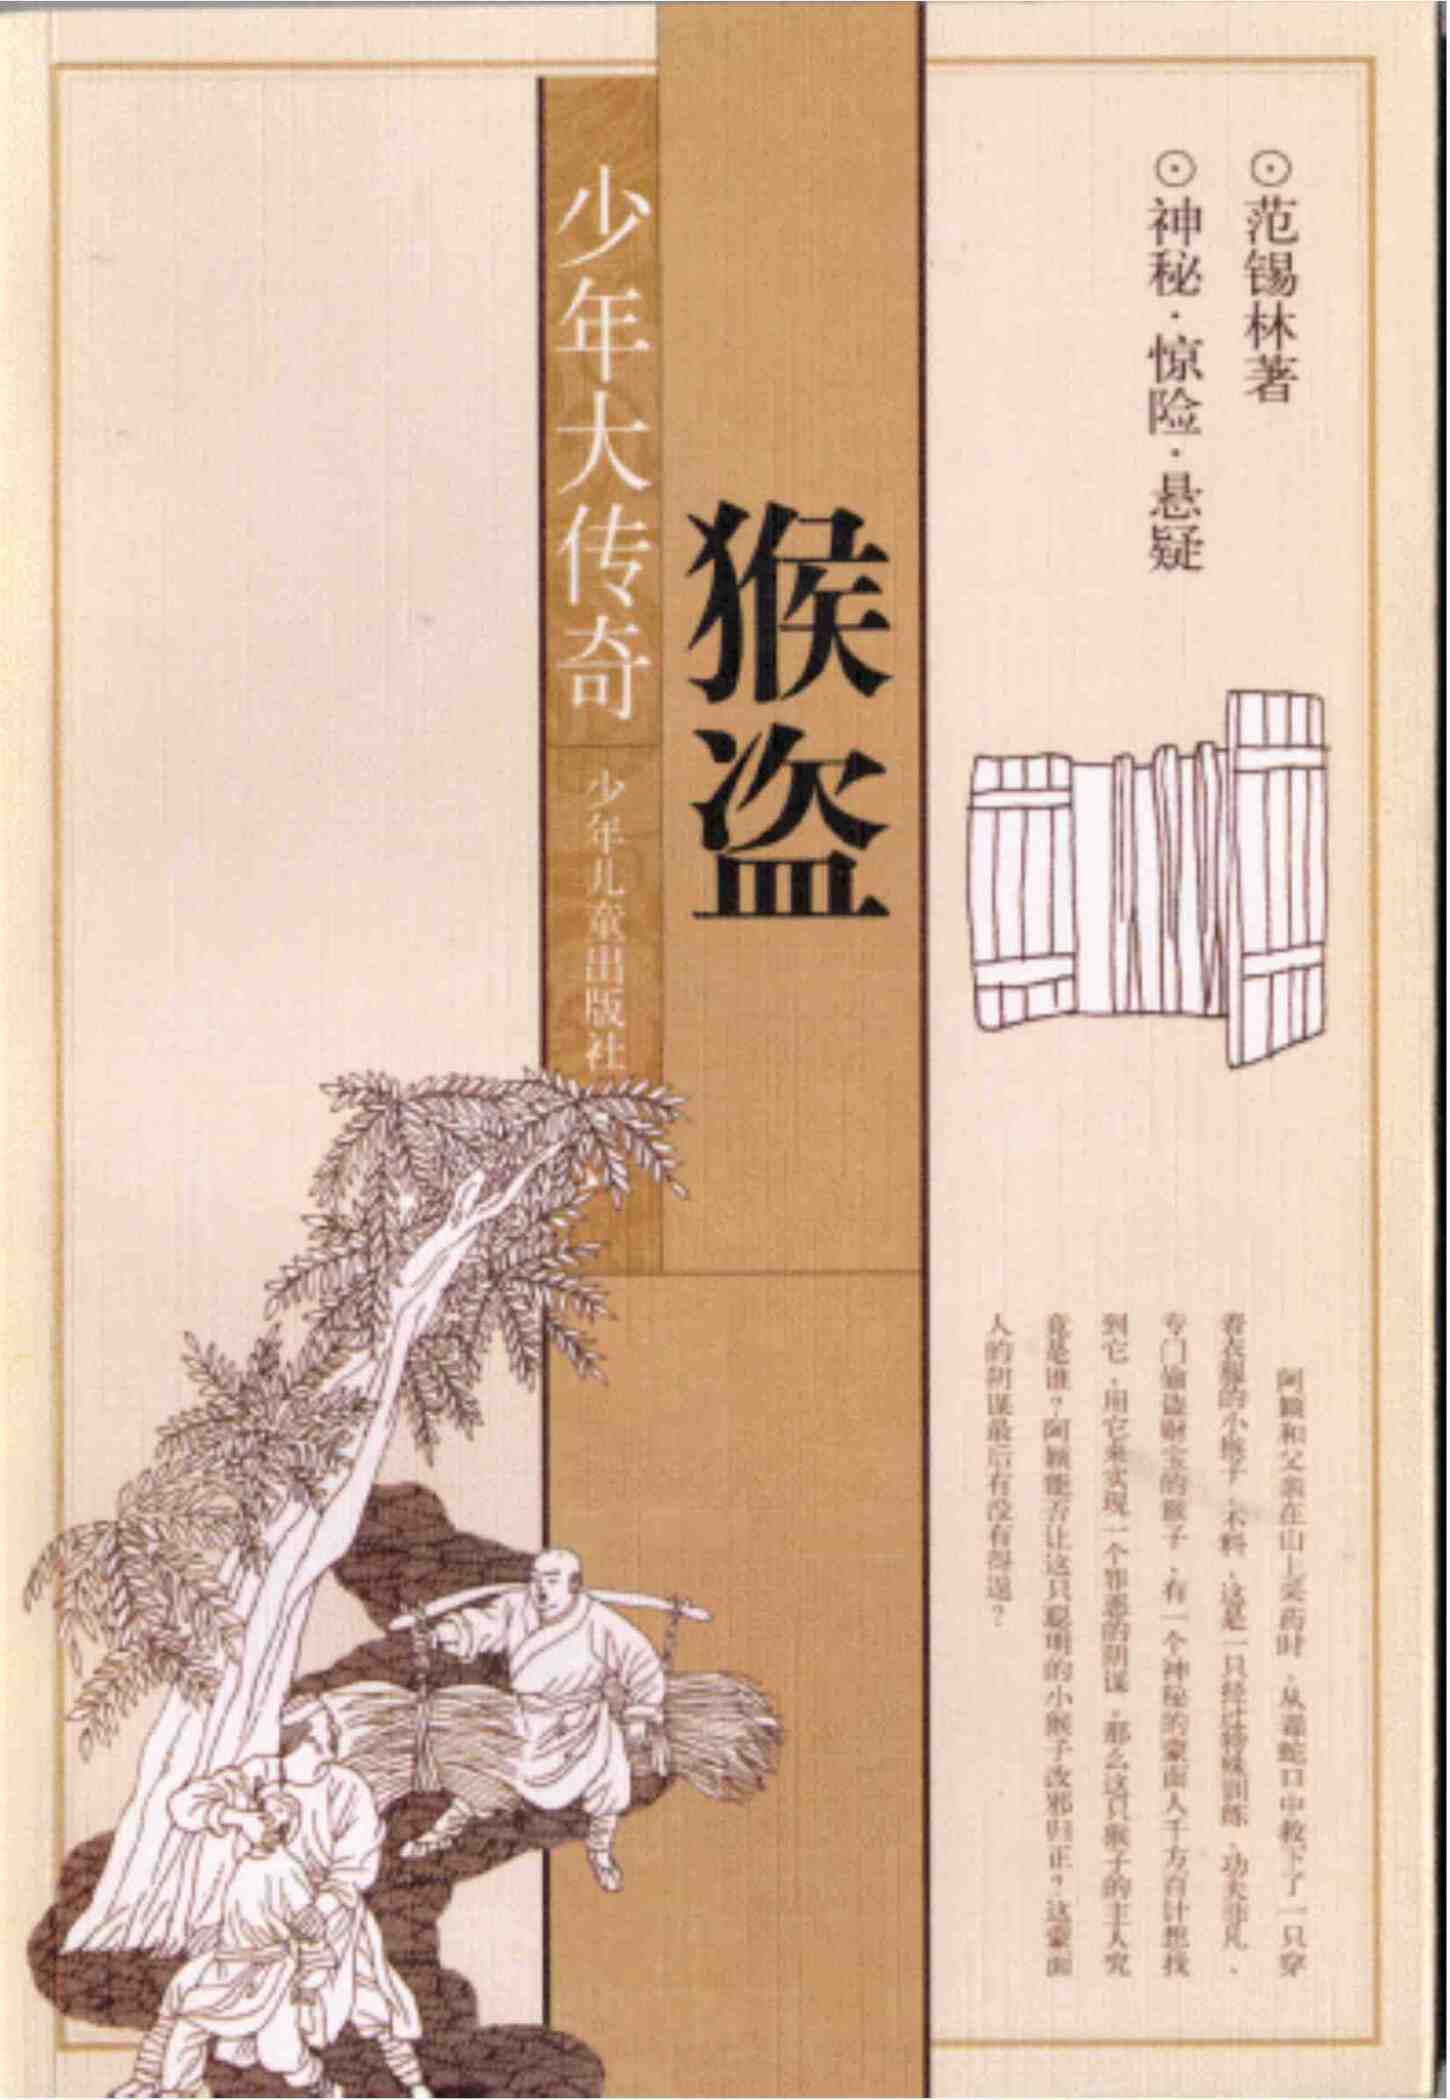 ⊙范锡林著
⊙神秘·惊险·悬疑
猴盗
少年大传奇
少年儿童出版社
阿颖和父亲在山上采药时，从毒蛇口中救下了一只穿
着衣服的小猴子，不料，这是一只经过特殊训练，功夫非凡，
专门偷盗财宝的猴子，有一个神秘的蒙面人千方百计想找
到它，用它来实现一个罪恶的阴谋，那么这只猴子的主人究
竟是谁？阿颖能否让这只聪明的小猴子改邪归正？这蒙面
人的阴谋最后有没有得逞？